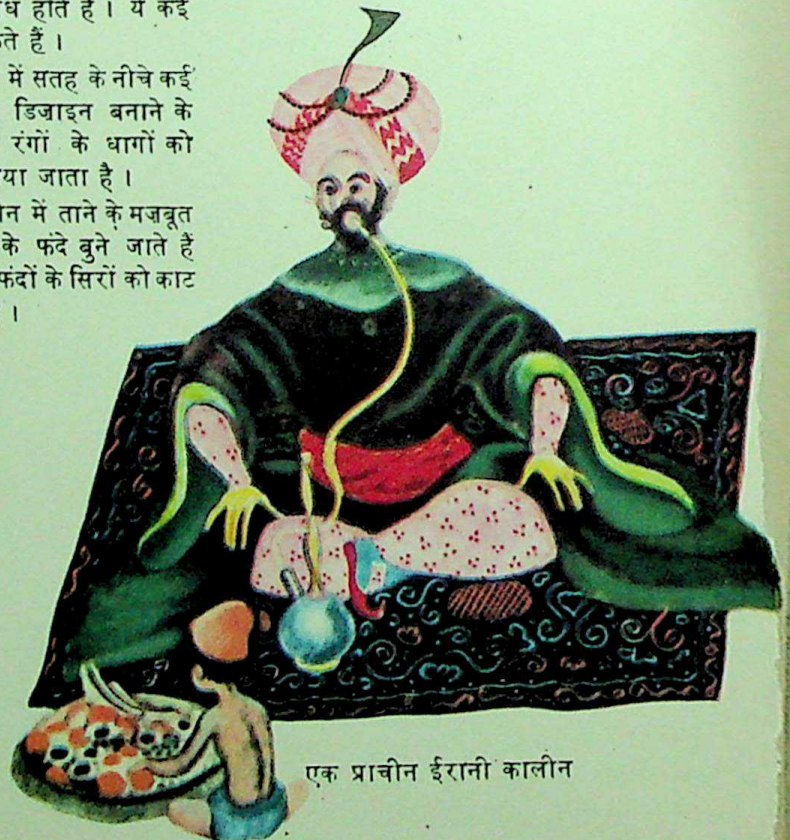 ध होते हैं । ये कई
ते हैं ।
में सतह के नीचे कई
डिज़ाइन बनाने के
रंगों के धागों को
या जाता है ।
न में ताने के मज़बूत
के फंदे बुने जाते हैं
फंदों के सिरों को काट
।
एक प्राचीन ईरानी कालीन